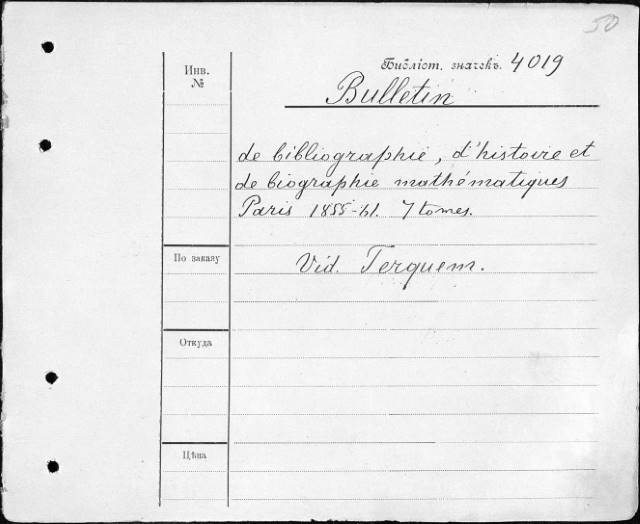 50
Библіот. значекъ. 4019
Инв.
№
Bulletin
de bibliographie, d'histoire et
de biographie mathématiques
Paris 1855-61. 7 tomes.
По заказу
Vid. Terquem.
Откуда
Цѣна